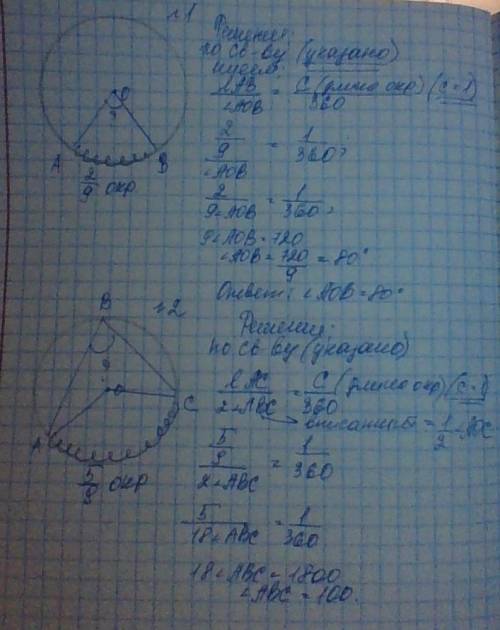 №1
Решение:
по св-ву (указано)
имеем:
lAB/∠AOB = C (длина окр)/360 (c=1)
2/9/∠AOB = 1/360;
2/9∠AOB = 1/360;
9∠AOB = 720
∠AOB = 720/9 = 80°
Ответ: ∠AOB = 80°
O
?
A
B
2/9 окр
№2
Решение:
по св-ву (указано)
lAC/2∠ABC = C (длина окр)/360 (c=1)
вписанный = 1/2∠AOC
5/9/2∠ABC = 1/360
5/18∠ABC = 1/360
18∠ABC = 1800
∠ABC = 100.
B
?
O
C
A
5/9 окр